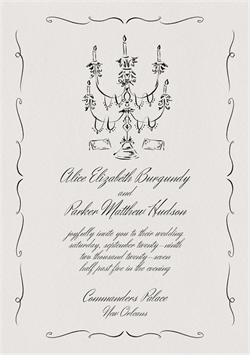 Alice Elizabeth Burgundy
and
Parker Matthew Hudson
joyfully invite you to their wedding
saturday, september twenty-ninth
two thousand twenty-seven
half past five in the evening
Commanders Palace
New Orleans